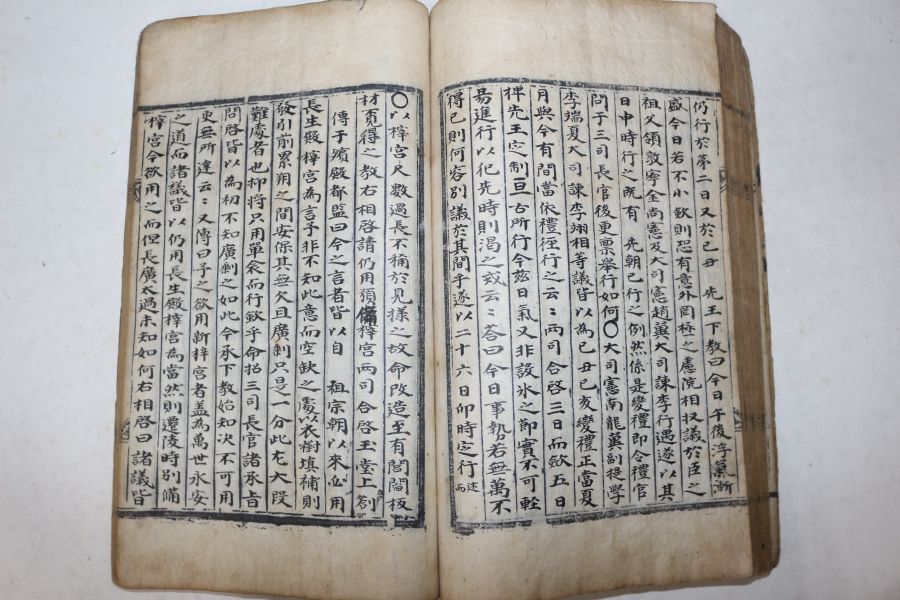 仍行於第二日又於己丑 先王下教曰今日午後浮氣漸
盛今日若不小斂則恐有意外罔極之慮院相收議於臣之
祖父領敦寧金尚憲及大司憲趙翼大司諫李行遇遂以其
日申時行之旣有 先朝已行之例然係是變禮卽令禮官
問于三司長官後更稟擧行如何〇大司憲南龍翼副提學
李端夏大司諫李翊相等議皆以爲己丑己亥變禮正當夏
月與今有間當依禮徑行之云〻兩司合啓三日而斂五日
㭗先王定制亘古所行今玆日氣又非設氷之節實不可輕
易進行以犯先時則渴之
云〻答曰今日事勢若無萬不
得已則何容別議於其間乎遂以二十六日卯時定行
〇以梓宮尺數過長不稱於見樣之故命改造至有閭閻板
材覓得之教右相啓請仍用預備梓宮兩司合啓玉堂上劄
傳于殯殿都監曰今之言者皆以自 祖宗朝以來必用
長生殿梓宮爲言予非不知此意而空缺之處以衣樹填補則
發引前累朔之間安保其無欠且廣剩只是一分此尤大段
難處者也抑將只用單衾而行斂乎命招三司長官諸承旨
問啓皆以爲初不知廣剩之如此今承下教始知決不可用
更無所達云〻又傳曰予之欲用新梓宮者盖爲萬世永安
之道而諸議皆以仍用長生殿梓宮爲當然則遷陵時別備
梓宮今欲用之而但長廣太過未知如何右相啓曰諸議皆